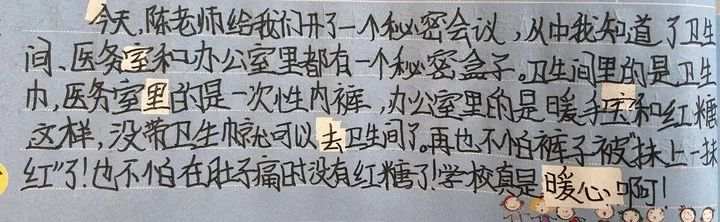 今天,陈老师给我们开了一个秘密会议,从中我知道了卫生
间、医务室和办公室里都有一个秘密盒子。卫生间里的是卫生
巾,医务室里的是一次性内裤,办公室里的是暖手宝和红糖
这样,没带卫生巾就可以去卫生间了。再也不怕裤子被“抹上一抹
红”了!也不怕在肚子痛时没有红糖了!学校真是暖心啊!